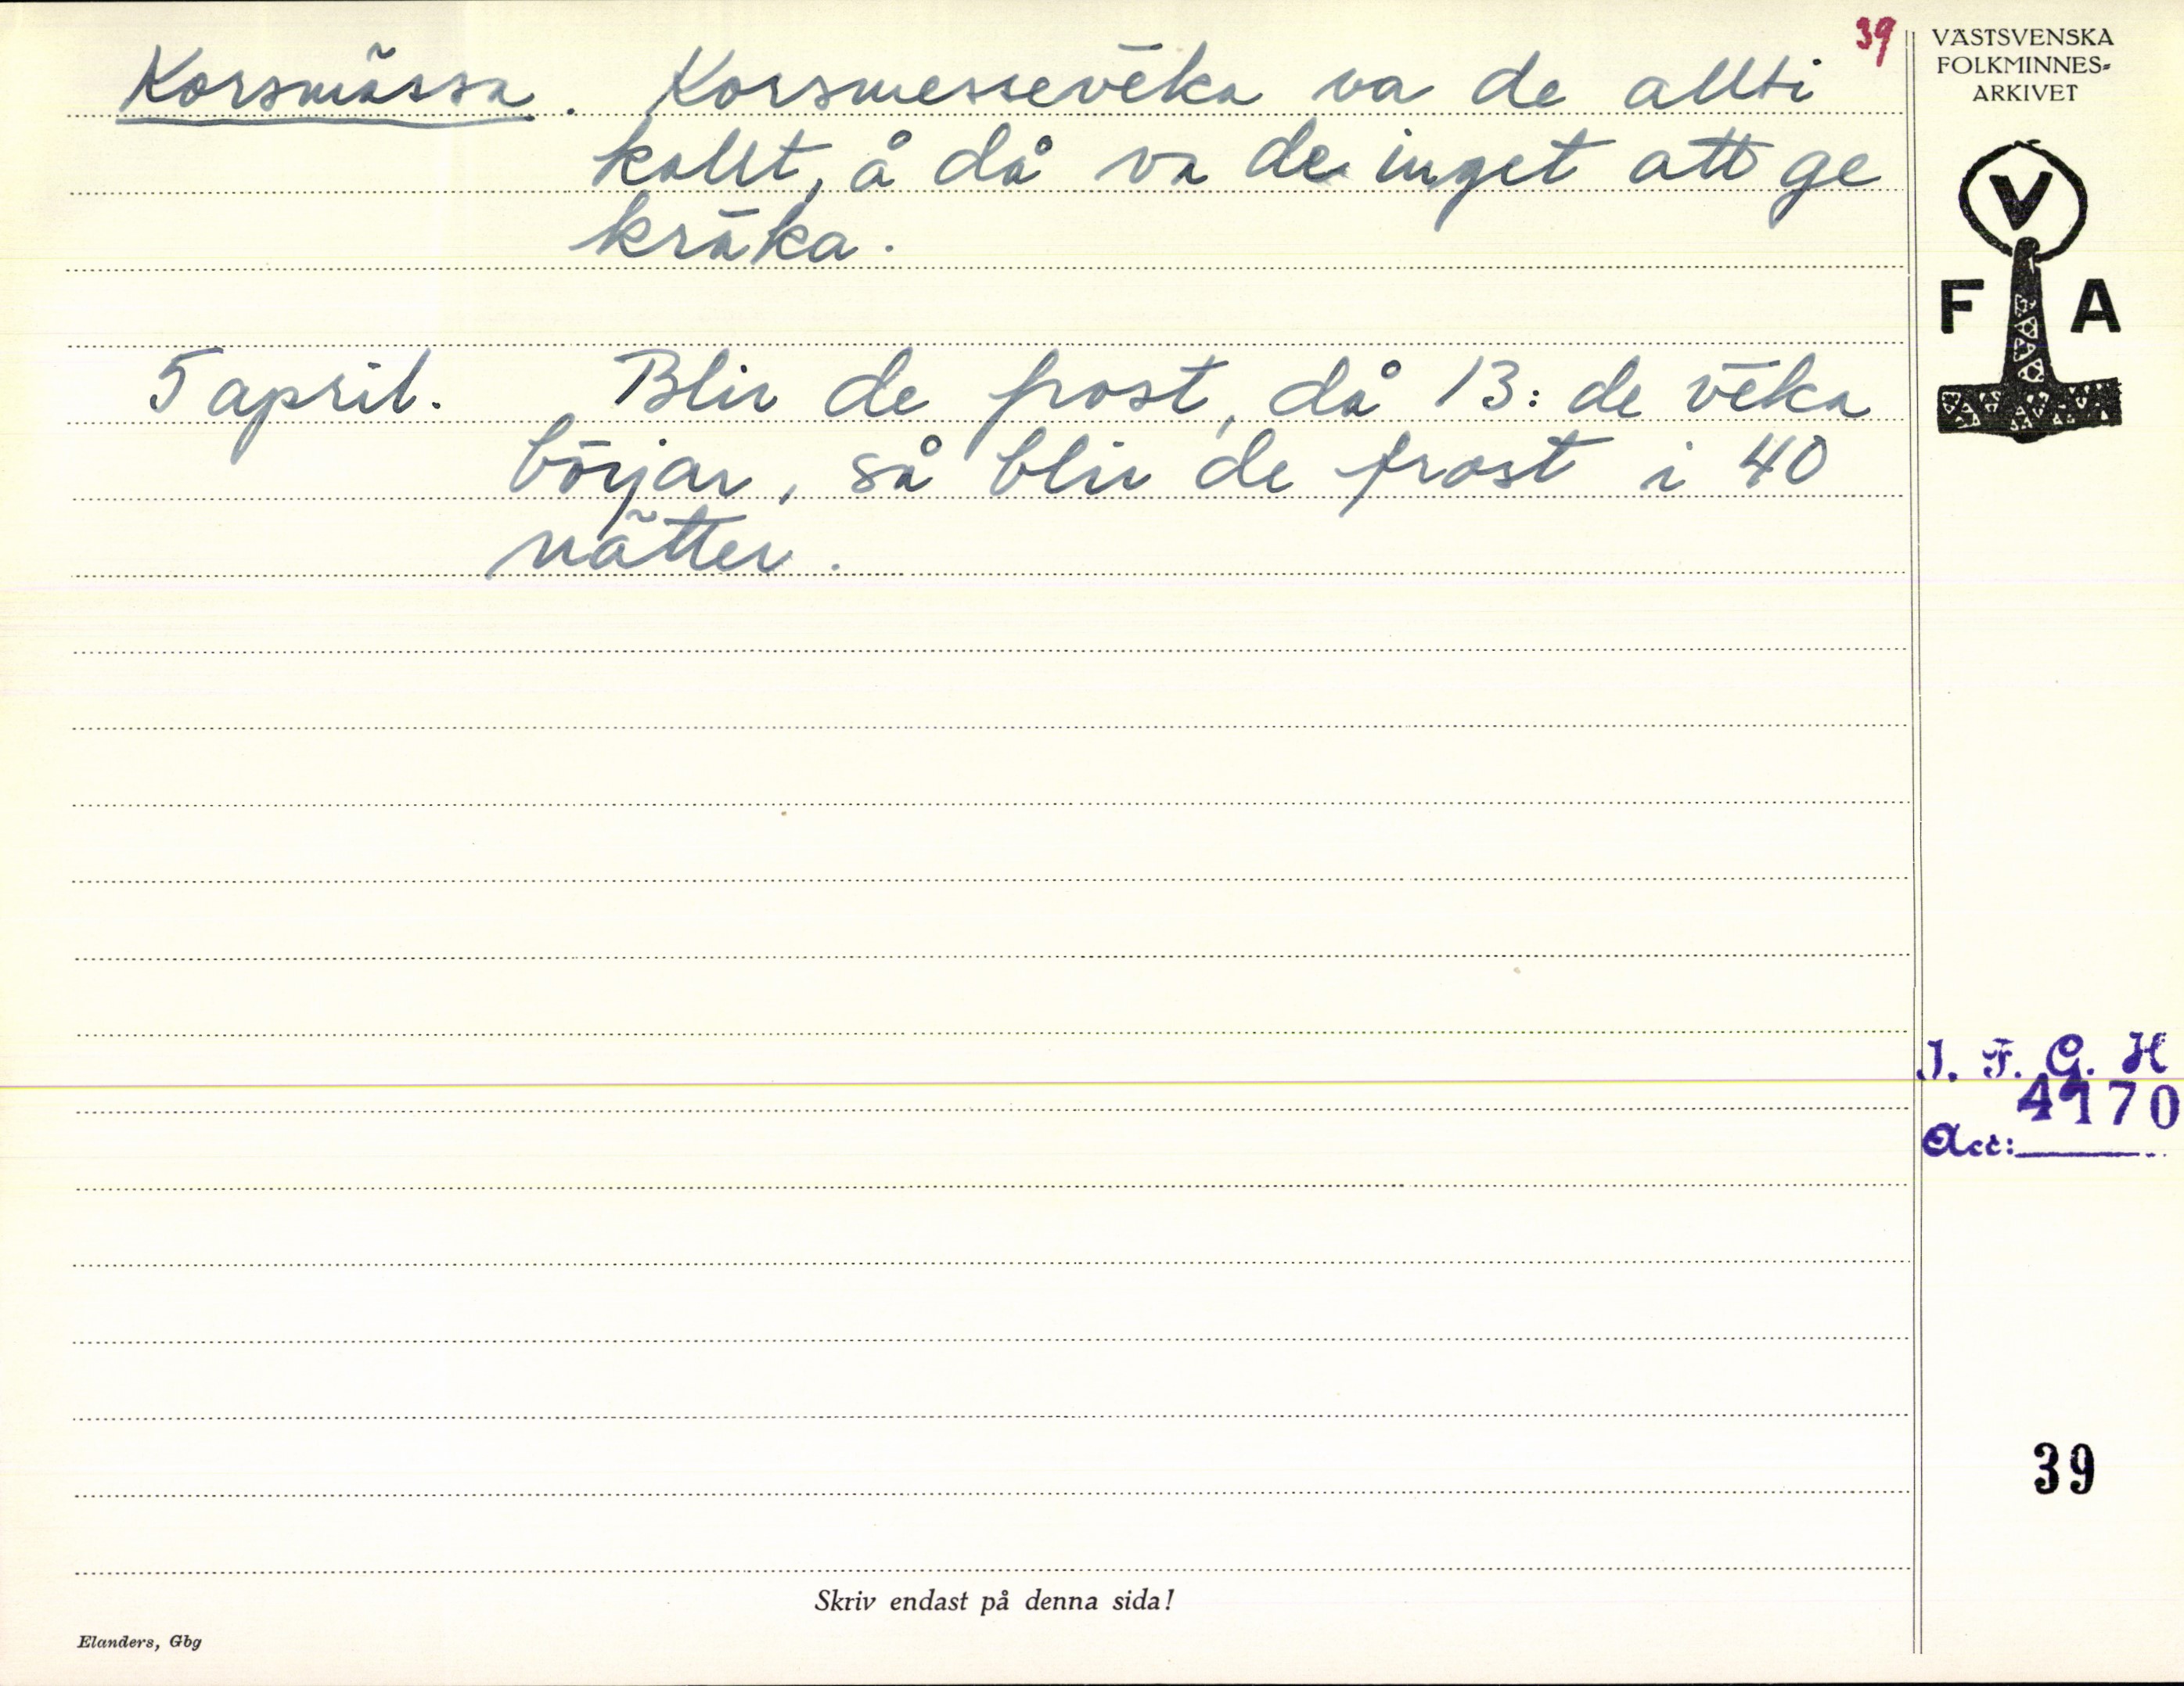 39
Korsmässa. Korsmessevēka va de allti
kallt, å då va de inget att ge
kräka.
5 april. Blir de frost, då 13:de vēka
börjar, så blir de frost i 40
nätter.
VÄSTSVENSKA
FOLKMINNES-
ARKIVET
V
F A
I. F. G. H
4170
Acc:
39
Skriv endast på denna sida!
Elanders, Gbg